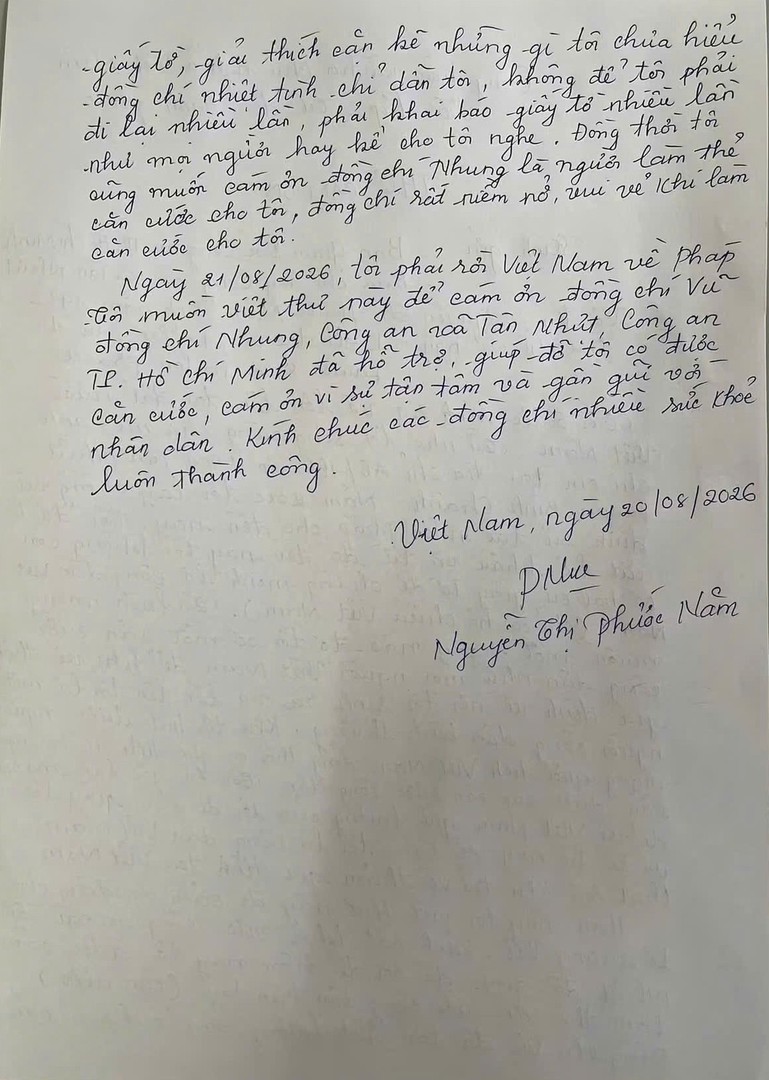 giấy tờ, giải thích cặn kẽ những gì tôi chưa hiểu
đồng chí nhiệt tình chỉ dẫn tôi, không để tôi phải
đi lại nhiều lần, phải khai báo giấy tờ nhiều lần
như mọi người hay kể cho tôi nghe. Đồng thời tôi
cũng muốn cám ơn đồng chí Nhung là người làm thẻ
căn cước cho tôi, đồng chí rất niềm nở, vui vẻ khi làm
căn cước cho tôi.
Ngày 21/08/2026, tôi phải rời Việt Nam về Pháp
Tôi muốn viết thư này để cám ơn đồng chí Vũ
đồng chí Nhung, Công an xã Tân Nhựt, Công an
TP. Hồ Chí Minh đã hỗ trợ, giúp đỡ tôi có được
căn cước, cám ơn vì sự tận tâm và gần gũi với
nhân dân. Kính chúc các đồng chí nhiều sức khoẻ
luôn thành công.
Việt Nam, ngày 20/08/2026
Nguyễn Thị Phước Nằm